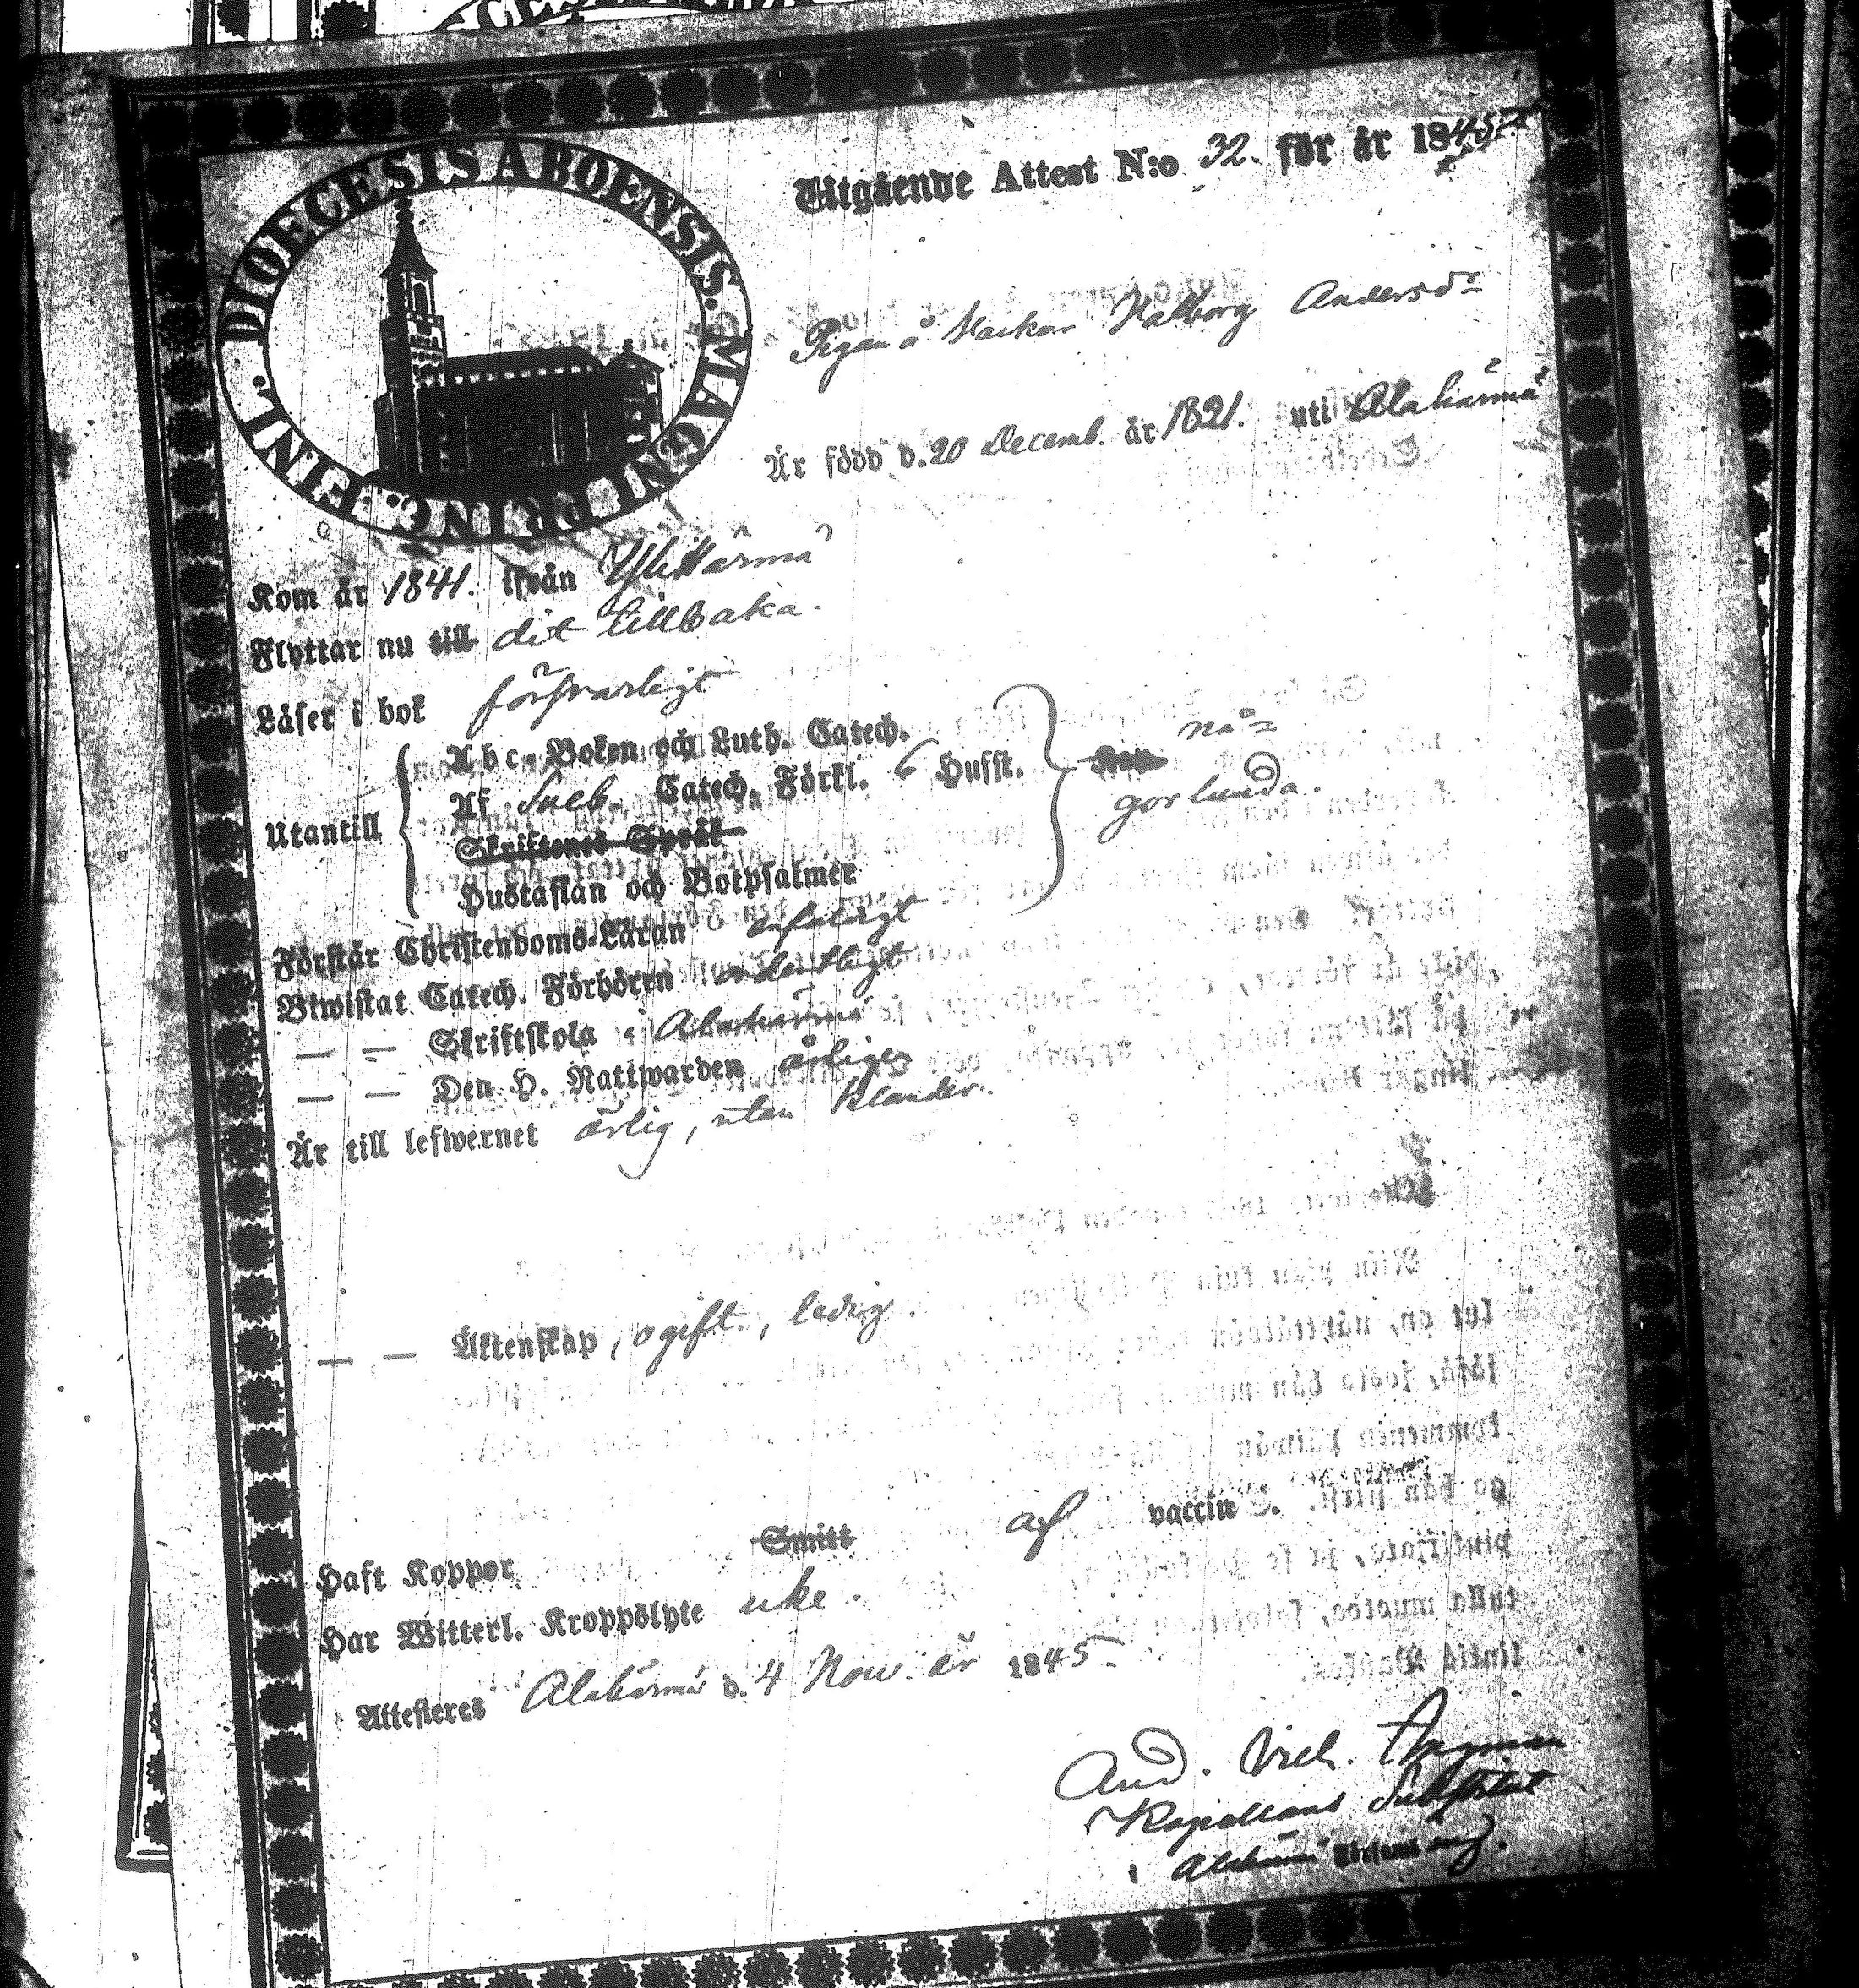 DIOECESIS ABOENSIS. MAGNI PRINC. FINL.
Utgående Attest N:o 32. för år 1845.
Pigan å Walborg Andersd:r
Är född d. 20 Decemb. år 1821. uti Alahärmä
Kom år 1841. ifrån YliHärmä
Flyttar nu till dit tillbaka.
Läser i bok försvarligt
Abc-Boken och Luth. Catech.
Af Sveb. Catech. Förkl. 6 Hufst.
Utantill
Skriftenes Språk
Hustaflan och Botpsalmer
nå=
gorlunda.
Förstår Christendoms-Läran enfaldigt
Biwistat Catech. Förhören ordentligt
— — Skriftskola i Alahärmä
— — Den H. Nattwarden årligen
Är till lefwernet ärlig, utan klander.
— — Äktenskap, ogift, ledig.
Haft Koppor Smitt af vaccin
Har Witterl. Kroppslyte icke.
Attesteras Alahärmä d. 4 Nov. år 1845.
And. Wilh.
Kapellans Substitut
i Alahärmä